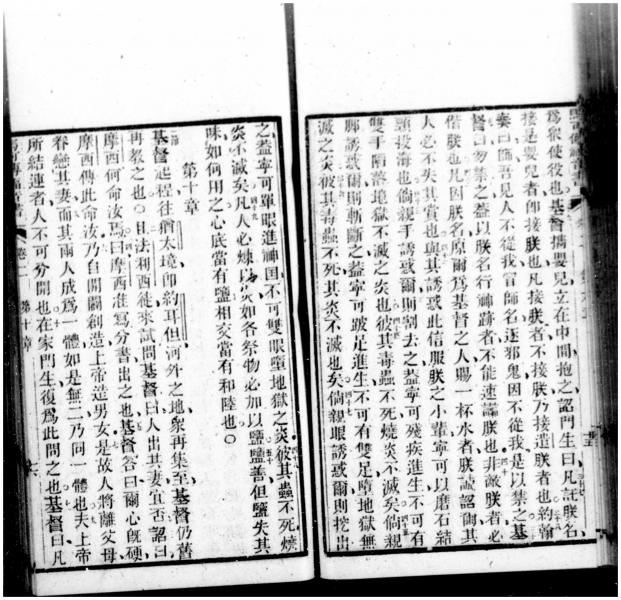 爲衆使役也基督攜嬰兒立在中間抱之詔門生曰凡託朕名
接是嬰兒者卽接朕也凡接朕者不接朕乃接遣朕者也約翰
奏曰師吾見人不從我冒師名逐邪鬼因不從我是以禁之基
督曰勿禁之蓋以朕名行神跡者不能速謗朕也非敵朕者必
偕朕也凡因朕名原爾爲基督之人賜一杯水者朕誠詔爾其
人必不失其賞也與其誘惑此信服朕之小輩寧可以磨石結
頸投海也倘親手誘惑爾則割去之蓋寧可殘疾進生不可有
雙手陷落地獄不滅之炎也彼其毒蟲不死燒炎不滅矣倘親
脚誘惑爾則斬斷之蓋寧可跛足進生不可有雙足墮地獄無
滅之炎彼其毒蟲不死其炎不滅也矣倘親眼誘惑爾則挖出
之蓋寧可單眼進神国不可雙眼墮地獄之炎彼其蟲不死燒
炎不滅矣凡人必煉以炎如各祭物必加以鹽鹽善但鹽失其
味如何用之心底當有鹽相交當有和陸也○
第十章
基督起程往猶太境卽約耳但河外之地衆再集至基督仍舊
再教之也○法利西徒來試問基督曰人出其妻宜否詔曰
摩西何命汝焉曰摩西准寫分書出之也基督答曰爾心旣硬
摩西傳此命汝乃自開闢創造上帝造男女是故人將離父母
眷戀其妻而其兩人成爲一體如是無二乃同一體也夫上帝
所結連者人不可分開也在家門生復爲此問之也基督曰凡
卷二 第十章